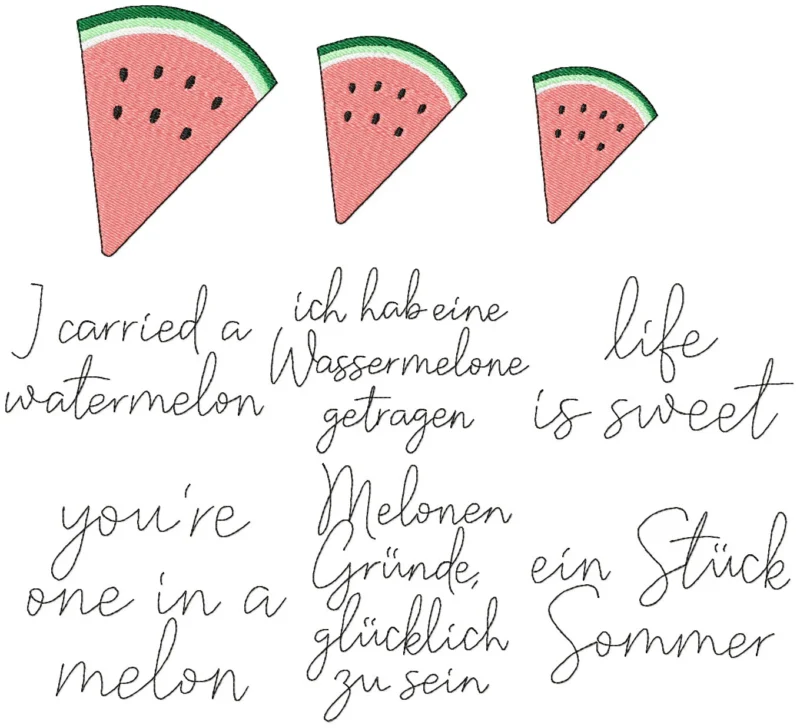 I carried a
watermelon
ich hab eine
Wassermelone
getragen
life
is sweet
you're
one in a
melon
Melonen
Gründe,
glücklich
zu sein
ein Stück
Sommer